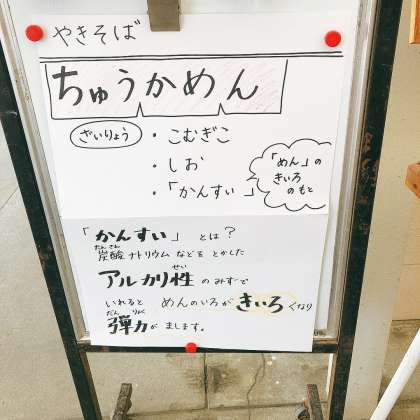 やきそば
ちゅうかめん
ざいりょう
・こむぎこ
・しお
・「かんすい」
「めん」の
きいろ
のもと
「かんすい」とは？
たんさん
炭酸ナトリウムなどをとかした
せい
アルカリ性のみずで
いれると めんのいろがきいろくなり
だんりょく
弾力がまします。